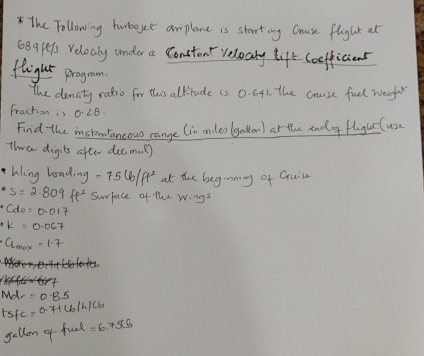 * The Following turbojet airplane is starting Cruise flight at
689 ft/s Velocity under a Constant Velocity Lift Coefficient
flight program.
The density ratio for this altitude is 0.641. The cruise fuel weight
fraction is 0.28.
Find the instantaneous range (in miles/gallon) at the end of flight (use
three digits after decimal)
• Wing loading = 75 lb/ft² at the beginning of Cruise
• S = 2.809 ft² Surface of the wings
• Cdo = 0.017
• K = 0.067
• Clmax = 1.7
Mdr = 0.85
tsfc = 0.71 lb/h/lb
gallon of fuel = 6.75lb